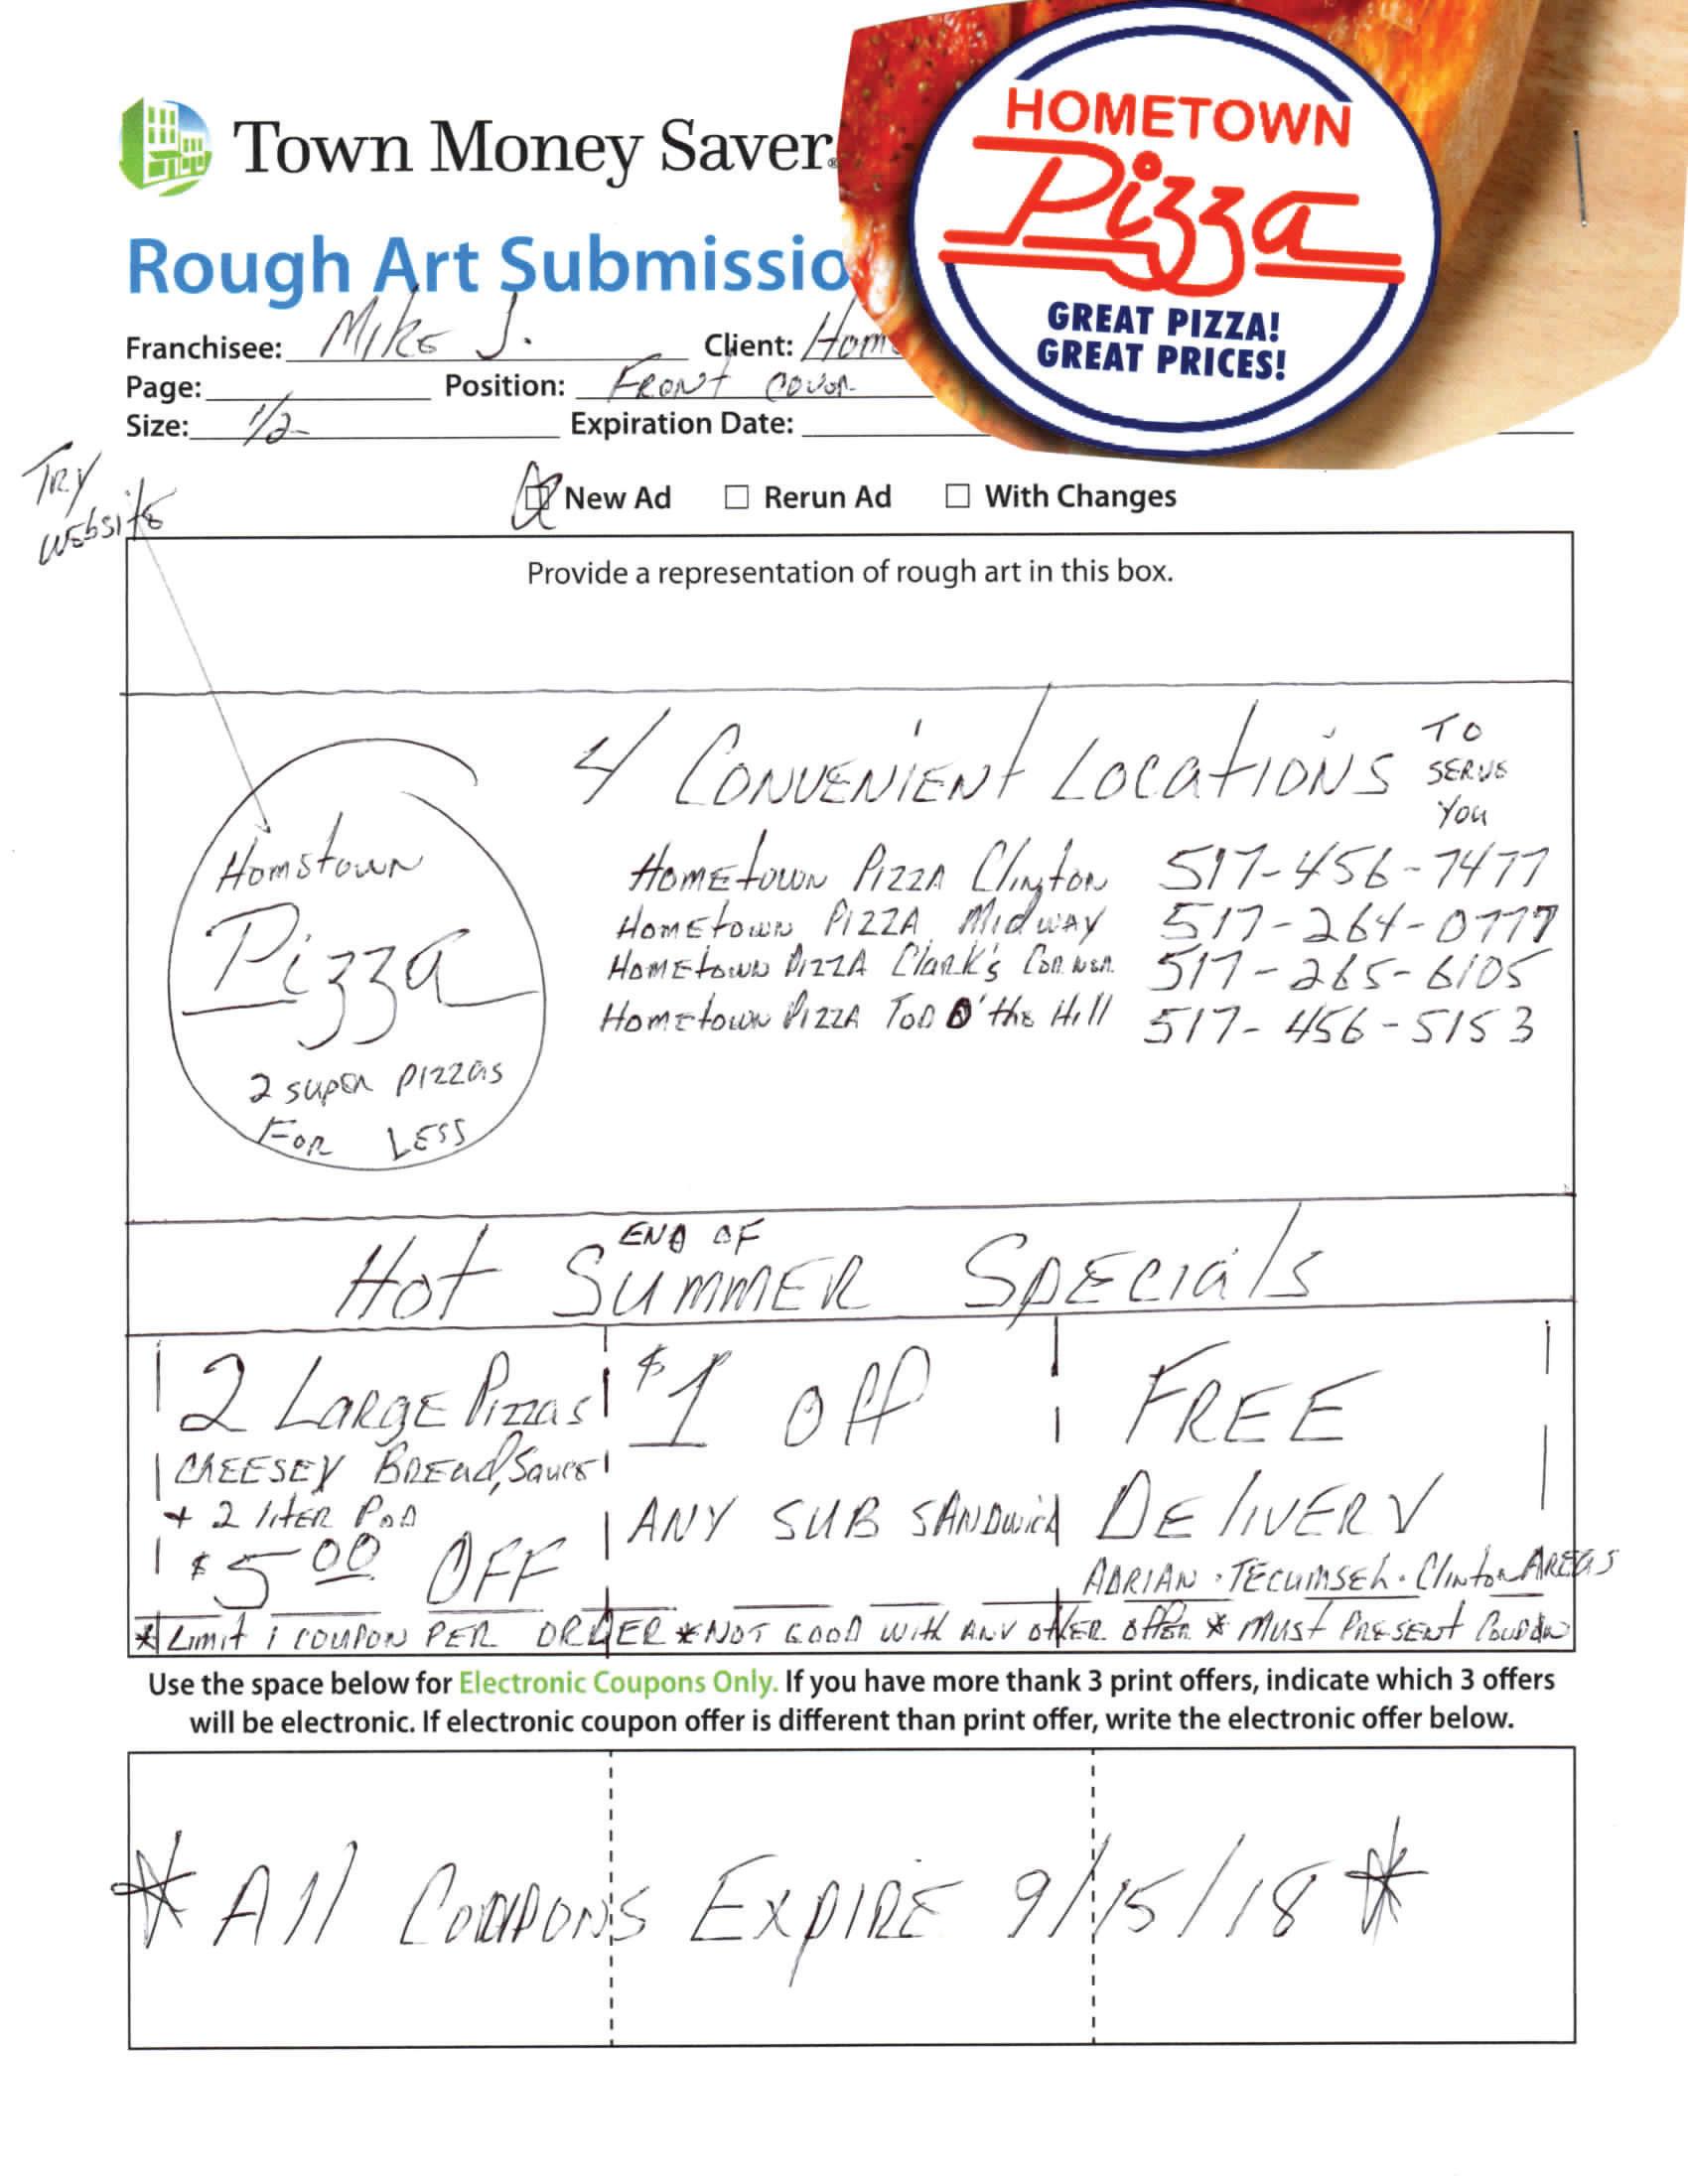 Town Money Saver®
HOMETOWN
Pizza
GREAT PIZZA!
GREAT PRICES!
Rough Art Submissio
Franchisee: Mike J. Client: Hom
Page: Position: Front Cover
Size: 1/2 Expiration Date:
Try
website
New Ad Rerun Ad With Changes
Provide a representation of rough art in this box.
4 Convenient Locations To
Serve
You
Hometown
Pizza
2 super pizzas
For Less
Hometown Pizza Clinton 517-456-7477
Hometown Pizza Midway 517-264-0777
Hometown Pizza Clark's Corner 517-265-6105
Hometown Pizza Top O' the Hill 517-456-5153
END OF
Hot Summer Specials
2 Large Pizzas
Cheesey Bread, Sauce
+ 2 liter Pop
$5.00 OFF
$1 Off
Any Sub Sandwich
FREE
Delivery
Adrian · Tecumseh · Clinton Areas
* Limit 1 coupon per order * Not good with any other offer * Must present coupon
Use the space below for Electronic Coupons Only. If you have more thank 3 print offers, indicate which 3 offers
will be electronic. If electronic coupon offer is different than print offer, write the electronic offer below.
* All Coupons Expire 9/15/18 *